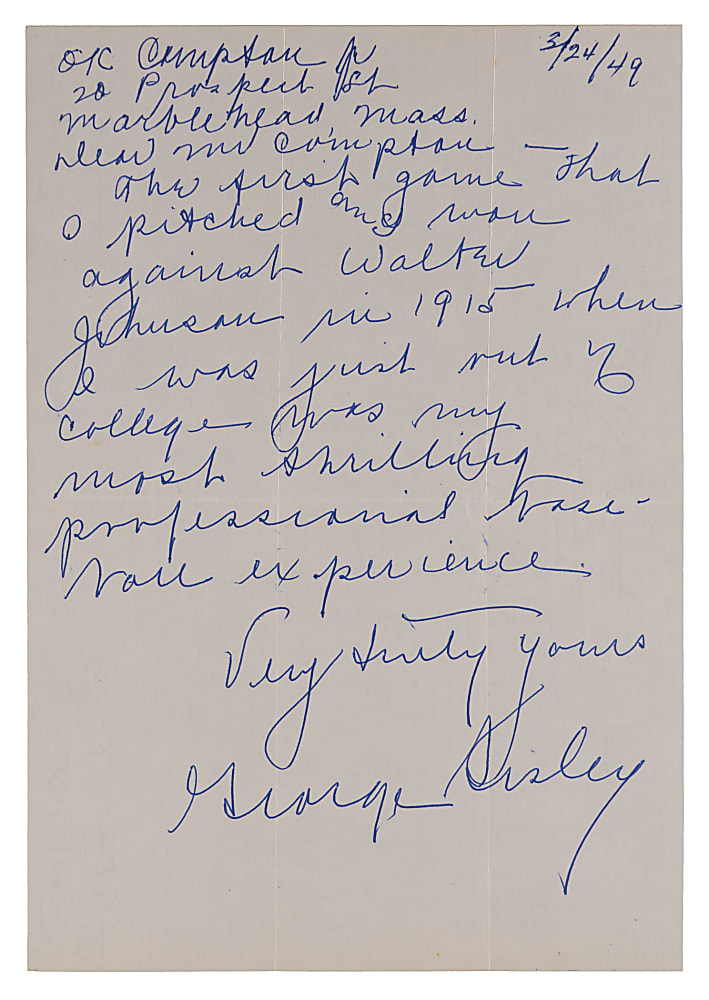 3/24/49
OK Compton Jr
20 Prospect St
Marblehead, Mass.
Dear Mr Compton —
The first game that
I pitched and won
against Walter
Johnson in 1915 when
I was just out of
college was my
most thrilling
professional base-
ball experience.
Very truly yours
George Sisler